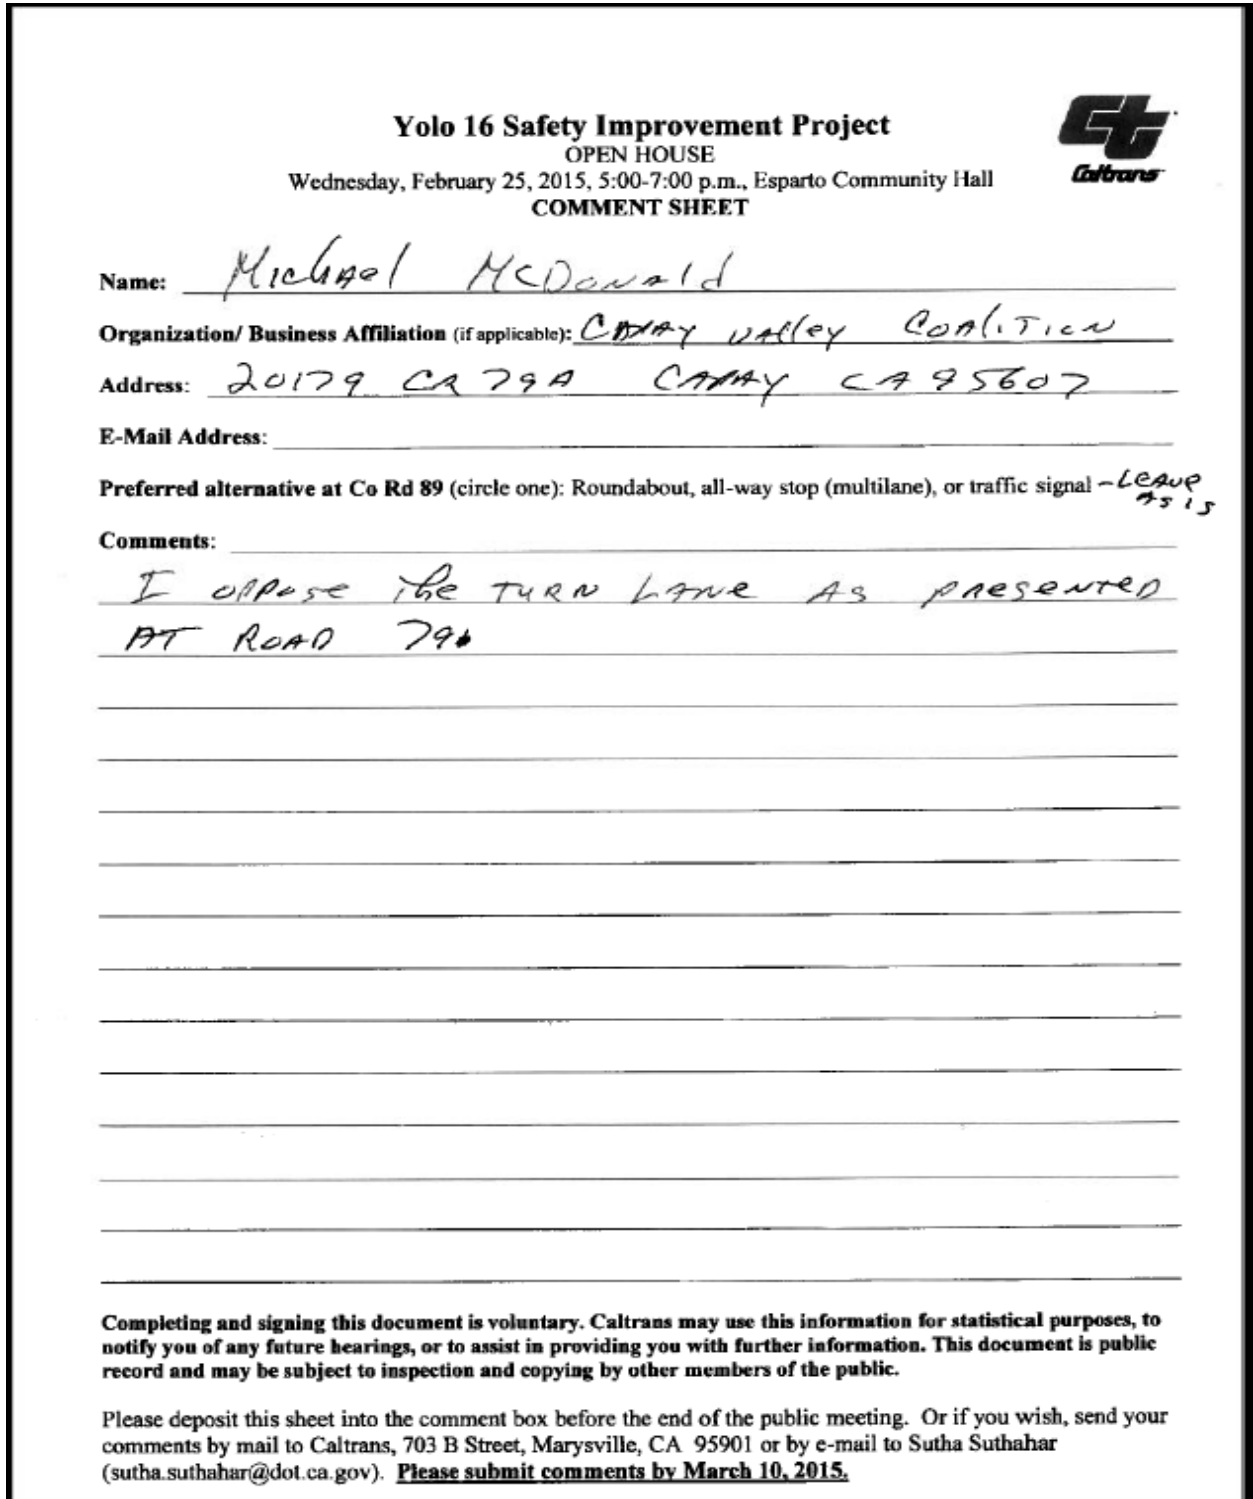 Yolo 16 Safety Improvement Project
OPEN HOUSE
Wednesday, February 25, 2015, 5:00-7:00 p.m., Esparto Community Hall
COMMENT SHEET
Caltrans
Name: Michael McDonald
Organization/ Business Affiliation (if applicable): CAPAY VAlley COAliTiON
Address: 20179 CR 79A CAPAY CA 95607
E-Mail Address:
Preferred alternative at Co Rd 89 (circle one): Roundabout, all-way stop (multilane), or traffic signal – LEAVE
AS IS
Comments:
I OPPOSE the TURN LANE AS PRESENTED
AT ROAD 79.
Completing and signing this document is voluntary. Caltrans may use this information for statistical purposes, to
notify you of any future hearings, or to assist in providing you with further information. This document is public
record and may be subject to inspection and copying by other members of the public.
Please deposit this sheet into the comment box before the end of the public meeting. Or if you wish, send your
comments by mail to Caltrans, 703 B Street, Marysville, CA 95901 or by e-mail to Sutha Suthahar
(sutha.suthahar@dot.ca.gov). Please submit comments by March 10, 2015.